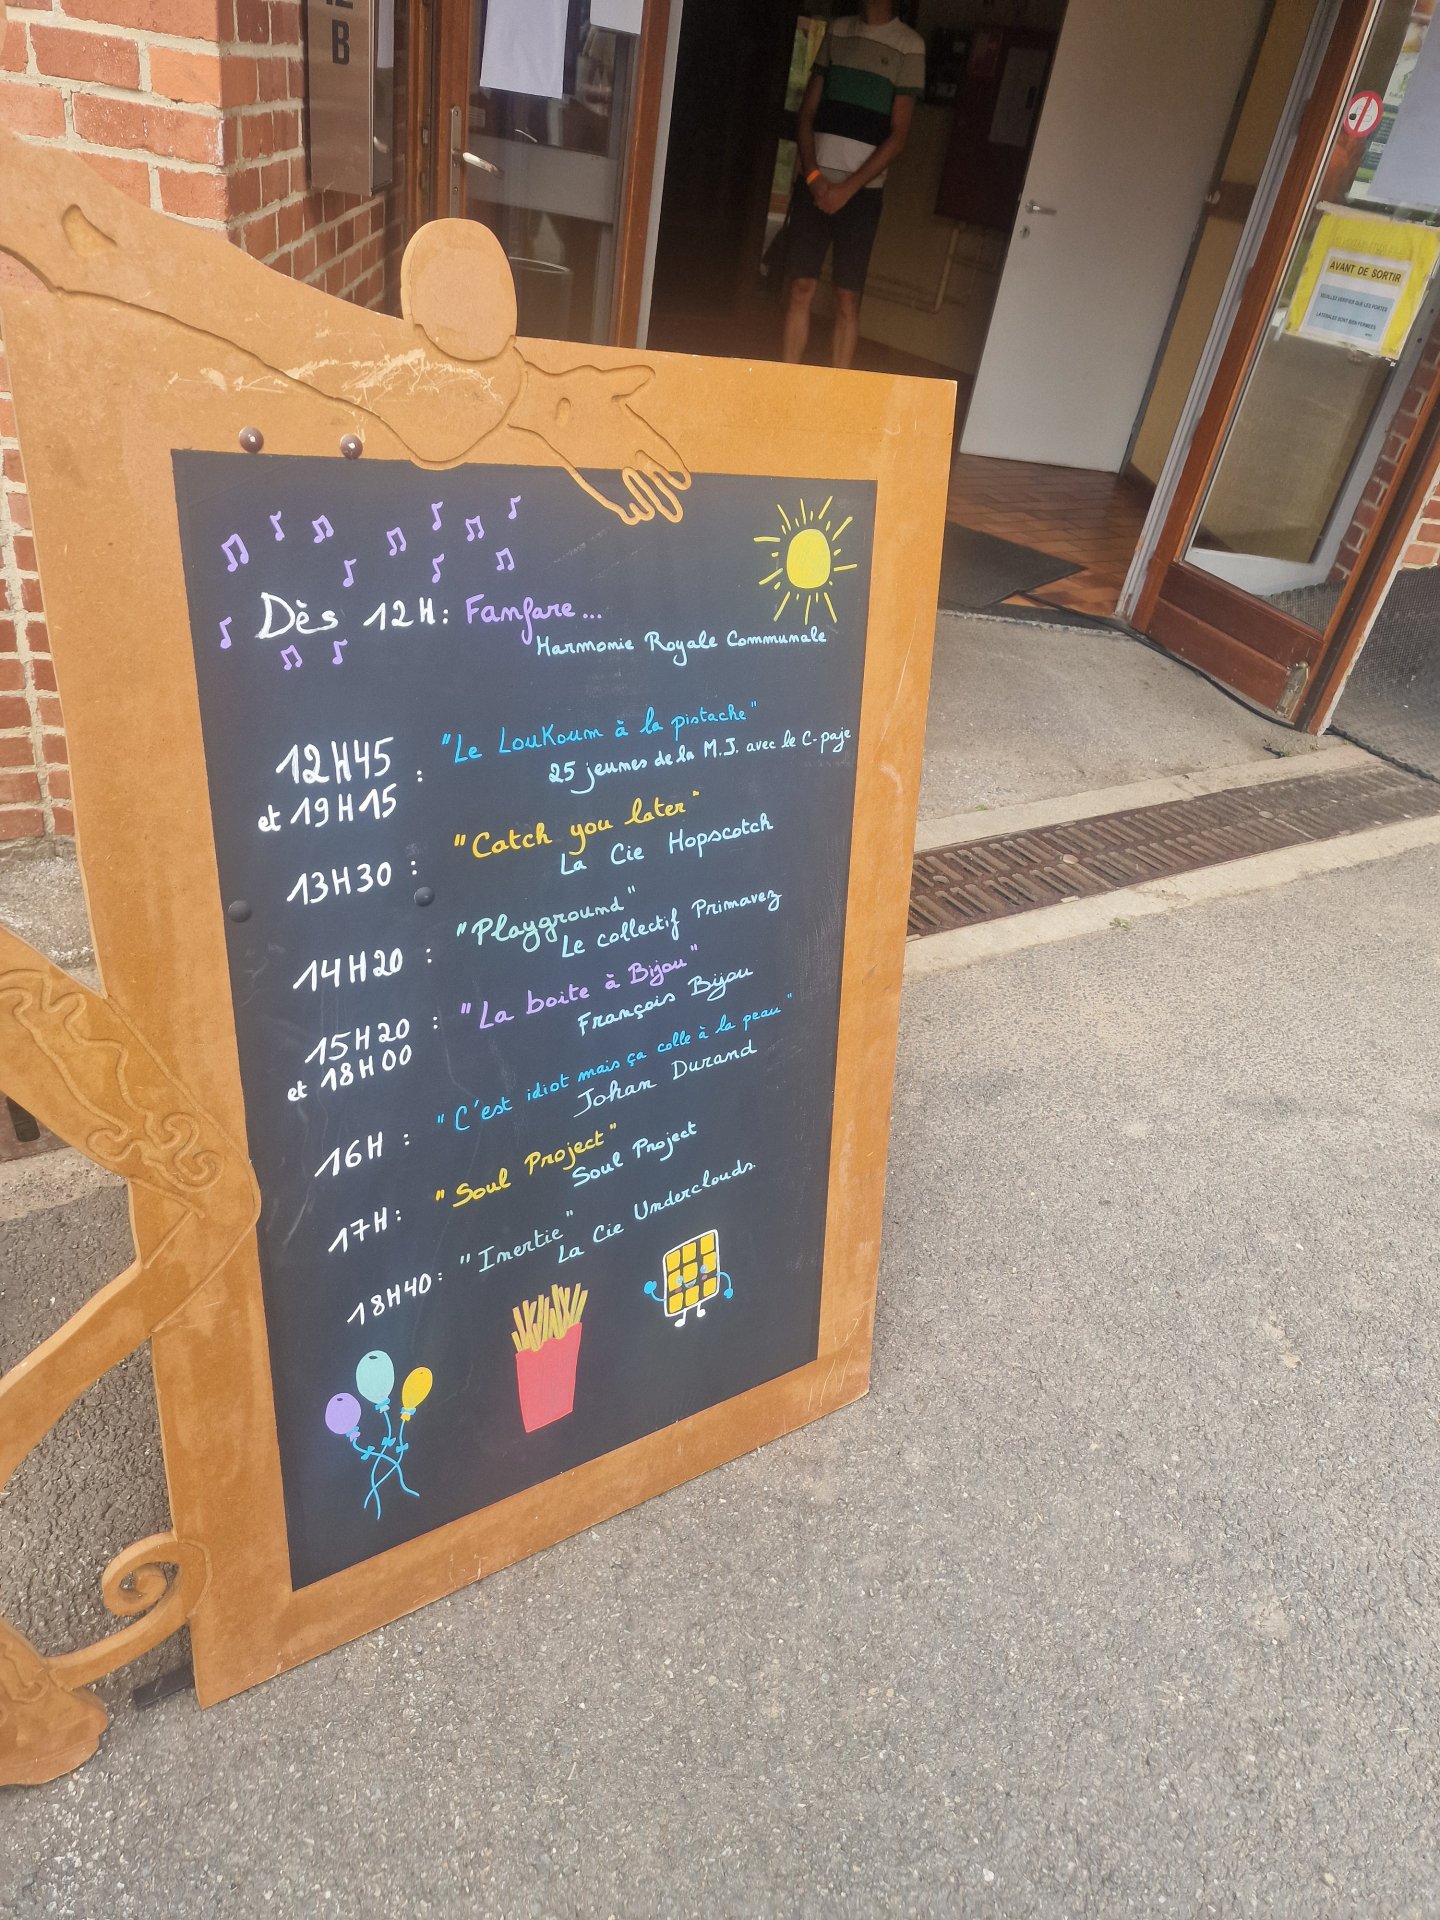 B
AVANT DE SORTIR
VEUILLEZ VERIFIER QUE LES PORTES
LATERALES SONT BIEN FERMEES
Dès 12H: Fanfare...
Harmonie Royale Communale
12H45 et 19H15 : "Le Loukoum à la pistache"
25 jeunes de la M.J. avec le C-paje
13H30 : "Catch you later"
La Cie Hopscotch
14H20 : "Playground"
Le collectif Primavez
15H20 et 18H00 : "La boite à Bijou"
François Bijou
16H : "C'est idiot mais ça colle à la peau"
Johan Durand
17H: "Soul Project"
Soul Project
18H40: "Inertie"
La Cie Underclouds.